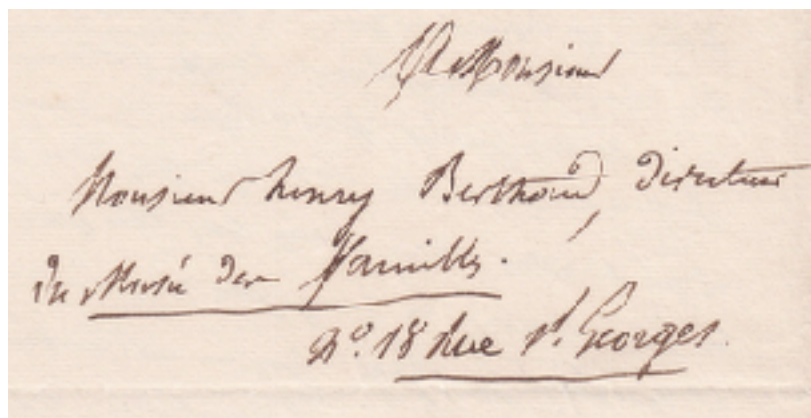 A Monsieur
Monsieur henry Berthoud, Directeur
du Musée des familles.
N°. 18 Rue St. Georges.